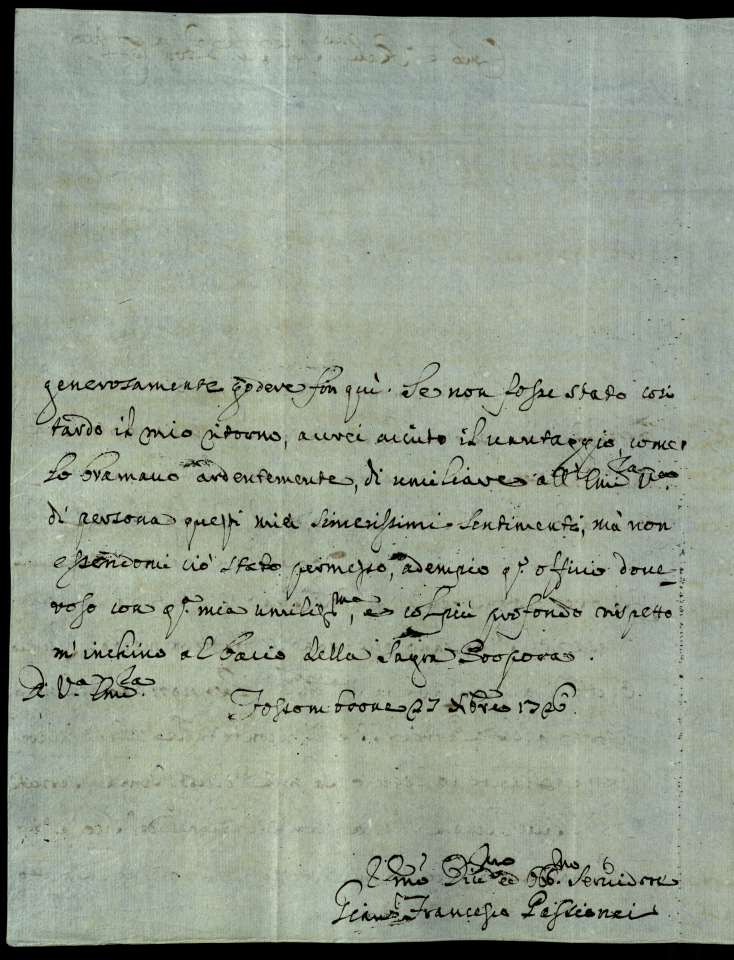 generosamente godere fin quì. Se non fosse stato così
tardo il mio ritorno, aurei auuto il uantaggio, come
lo bramauo ardentemente, di umiliare all'Emza Va
di persona questi miei sincerissimi sentimenti, mà non
essendomi ciò stato permesso, adempio qto offitio doue-
roso con qta mia umilissma, e col più profondo rispetto
m'inchino al bacio della Sagra Porpora.
Di Va Emza.
Fossombrone 27 Nbre 1726
Umo Diumo ed Obbmo Seruidore
Gian Francesco Passionei